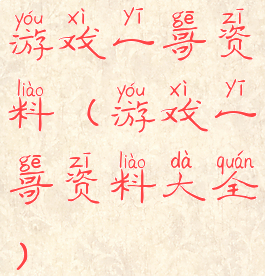 yóu xì yī gē zī
游戏一哥资
liào yóu xì yī
料（游戏一
gē zī liào dà quán
哥资料大全
）